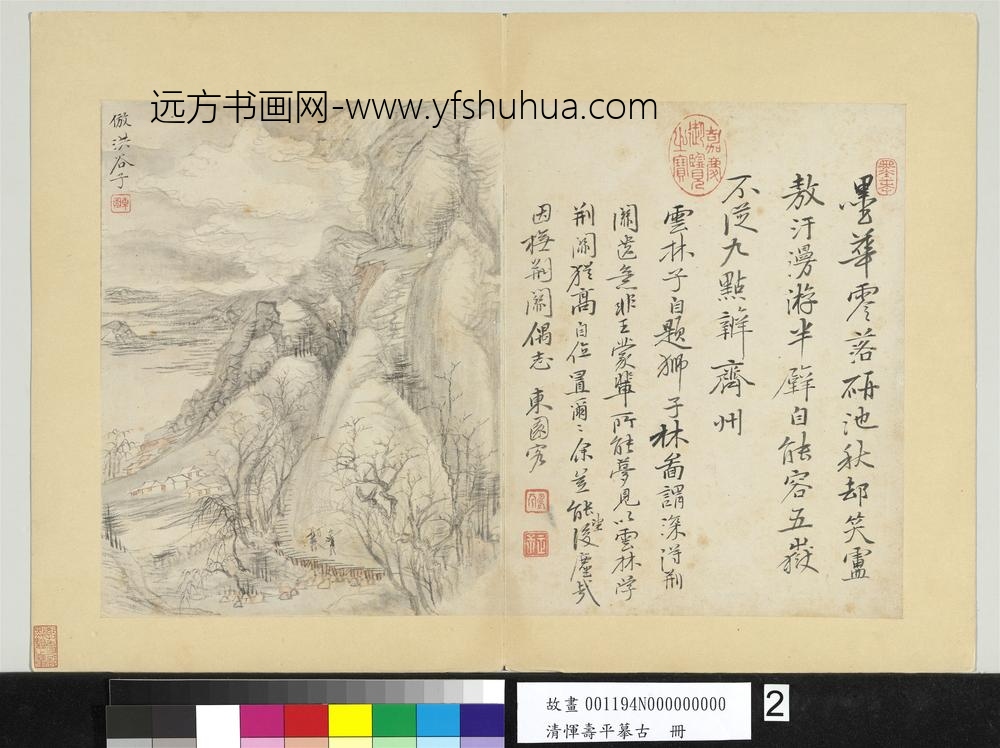 远方书画网-www.yfshuhua.com
嘉慶御覽之寶
墨華零落研池秋却笑盧
敖汗漫游半壁自能容五嶽
不從九點辨齊州
雲林子自題獅子林啚謂深淂荆
關遺意非王蒙輩所能夢見以雲林学
荆關猶高自位置爾爾余豈能望後塵哉
因橅荆關偶志 東園客
倣洪谷子
故畫 001194N000000000
清惲壽平摹古 冊
2